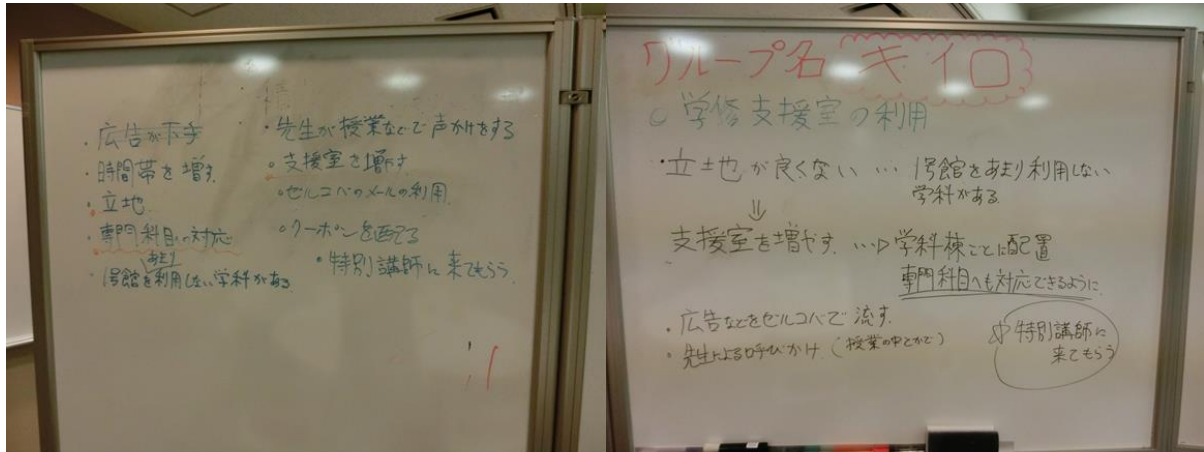 ・広告が下手
・時間帯を増す。
・立地
・専門科目への対応
あまり
1号館を利用しない学科がある。
・先生が授業などで声かけをする
・支援室を増やす。
・ゼルコバのメールの利用
・クーポンを配る
・特別講師に来てもらう
グループ名 キイロ
○学修支援室の利用
・立土也が良くない … 1号館をあまり利用しない
学科がある。
⇓
支援室を増やす。…▷学科棟ごとに配置
専門科目へも対応できるように
・広告などをゼルコバで流す。
・先生による呼びかけ(授業の中とかで)
特別講師に
来てもらう